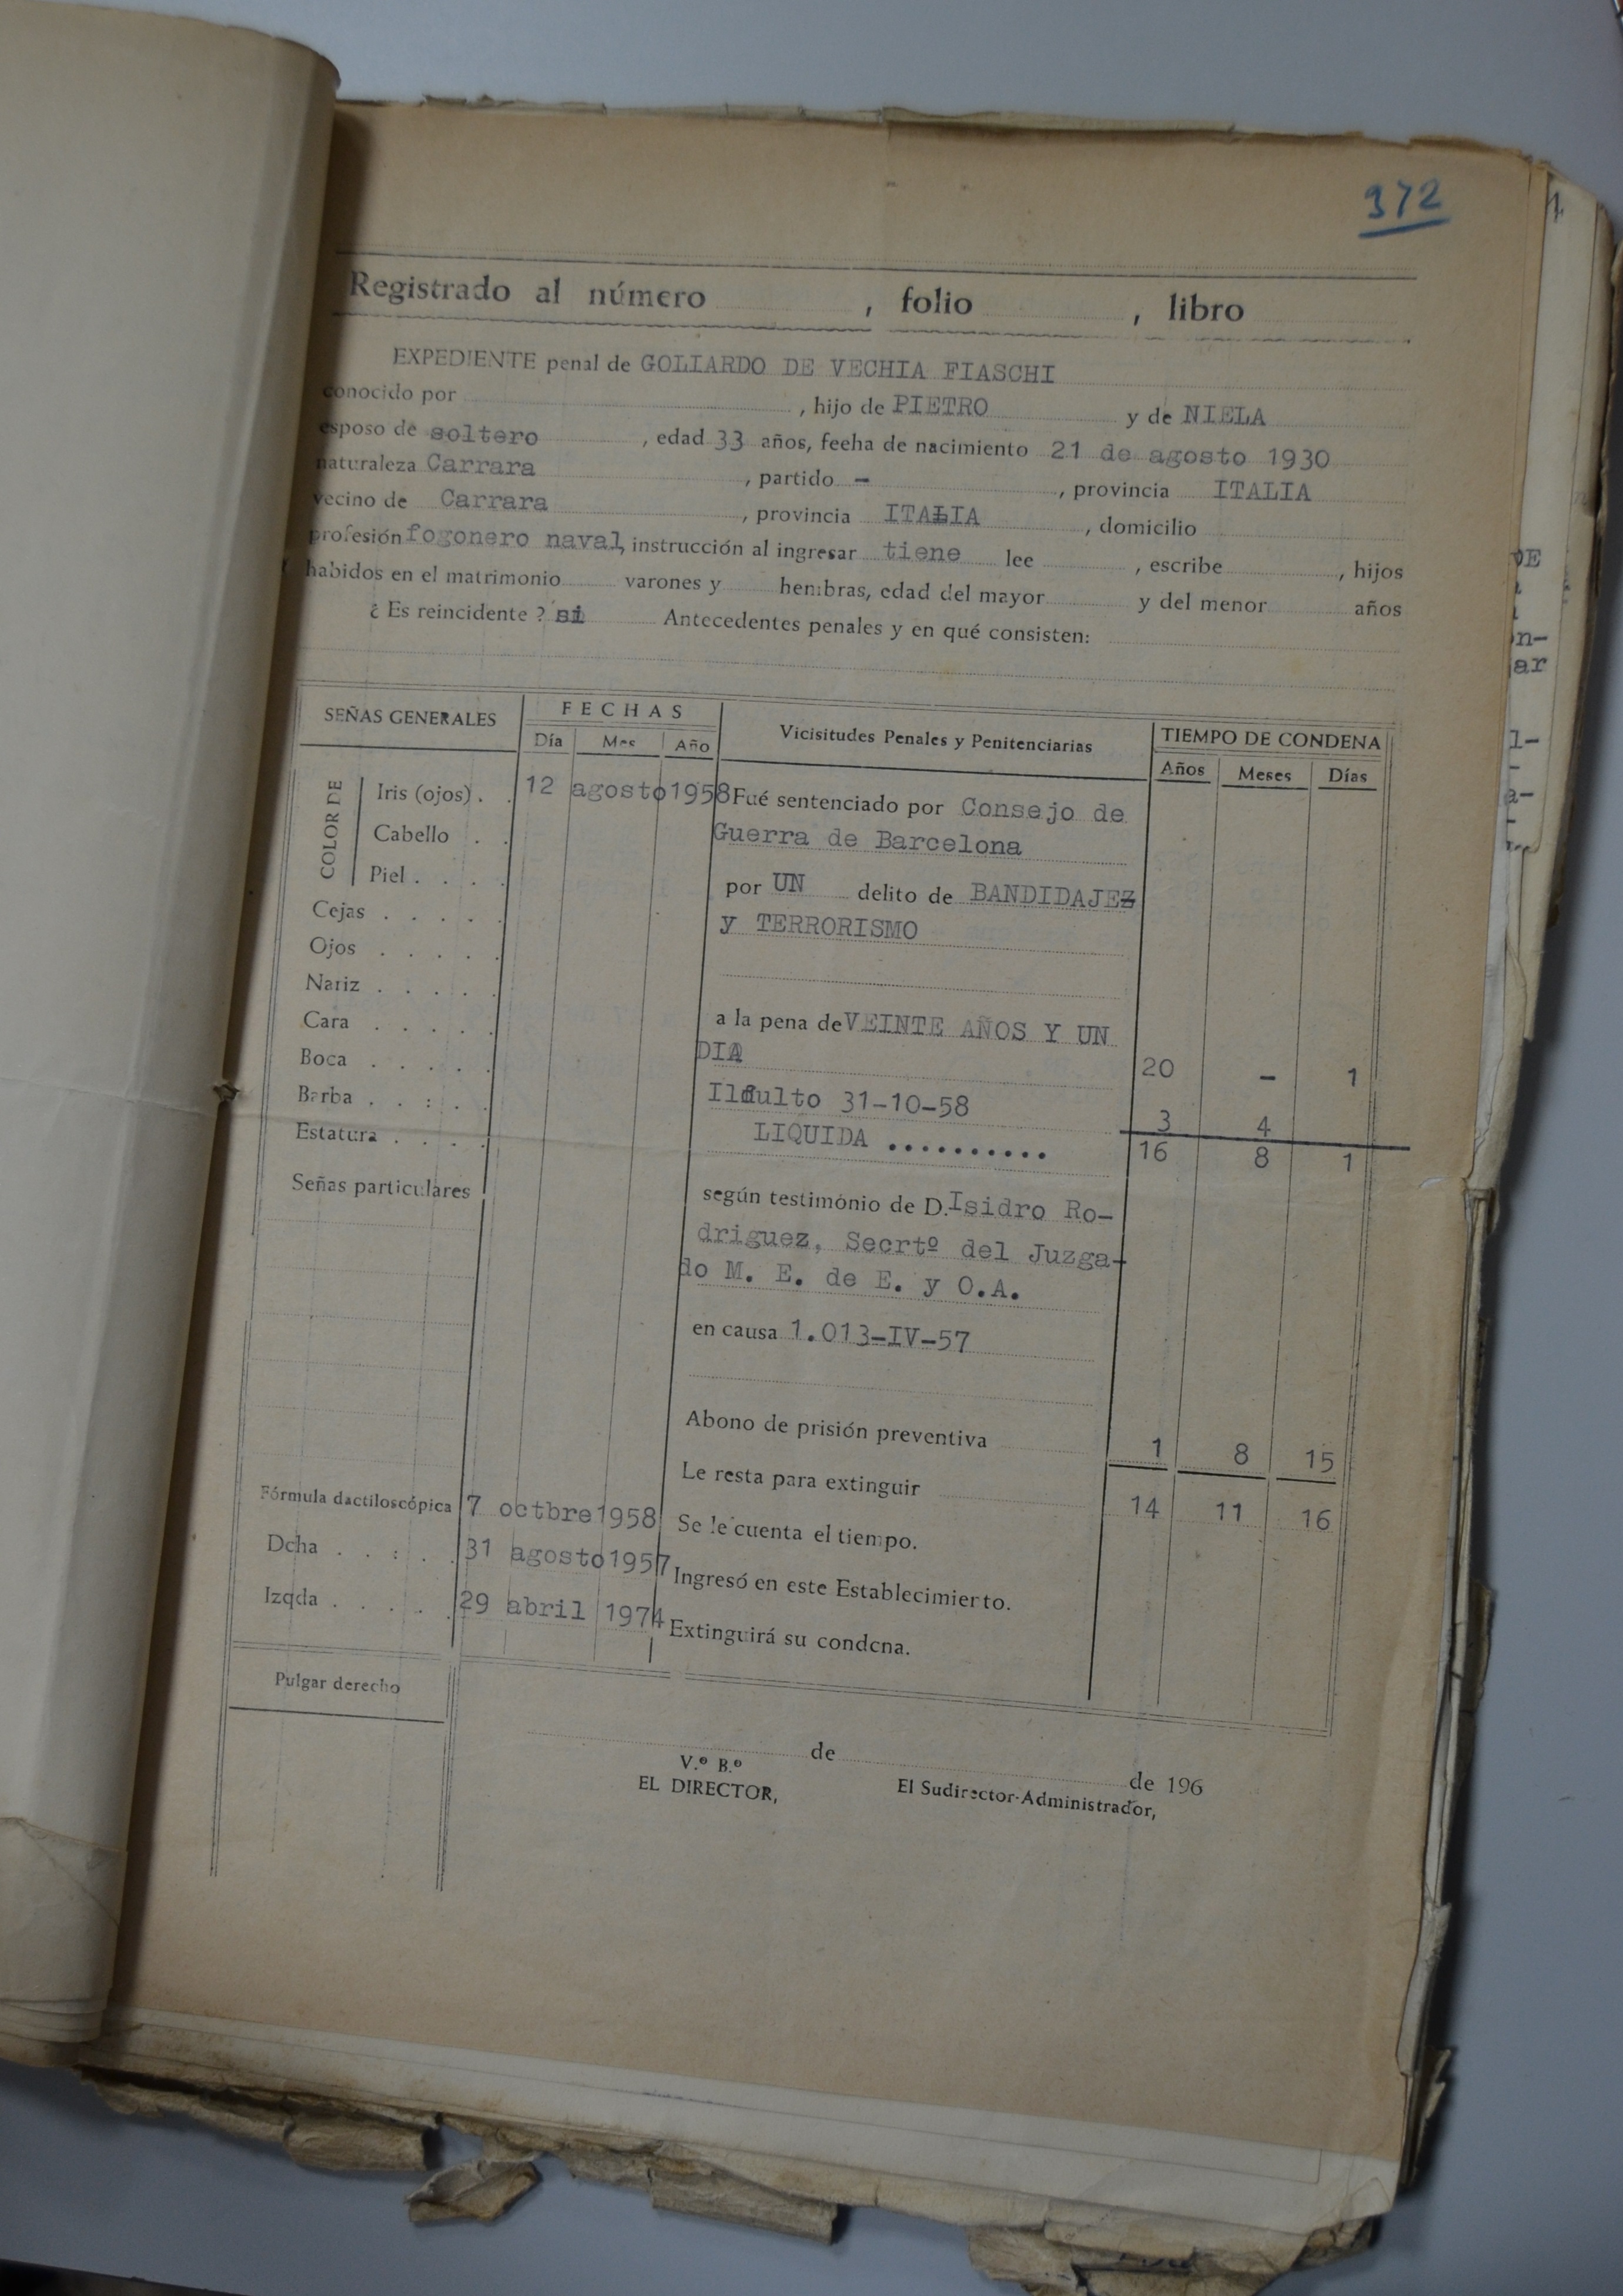 372
Registrado al número , folio , libro
EXPEDIENTE penal de GOLIARDO DE VECHIA FIASCHI
conocido por , hijo de PIETRO y de NIELA
esposo de soltero , edad 33 años, feeha de nacimiento 21 de agosto 1930
naturaleza Carrara , partido - , provincia ITALIA
vecino de Carrara , provincia ITALIA , domicilio
profesión fogonero naval, instrucción al ingresar tiene lee , escribe , hijos
habidos en el matrimonio varones y hembras, edad del mayor y del menor años
¿ Es reincidente ? si Antecedentes penales y en qué consisten:
SEÑAS GENERALES
FECHAS
Vicisitudes Penales y Penitenciarias
TIEMPO DE CONDENA
Día Mes Año
Años Meses Días
COLOR DE
Iris (ojos) . .
Cabello . .
Piel . . . .
Cejas . . . . .
Ojos . . . . .
Nariz . . . . .
Cara . . . . .
Boca . . . . .
Barba . . : . .
Estatura . . . .
Señas particulares
12 agosto 1958 Fué sentenciado por Consejo de
Guerra de Barcelona
por UN delito de BANDIDAJE
y TERRORISMO
a la pena de VEINTE AÑOS Y UN
DIA 20 - 1
Indulto 31-10-58 3 4
LIQUIDA .......... 16 8 1
según testimonio de D. Isidro Ro-
driguez, Secrtº del Juzga-
do M. E. de E. y O.A.
en causa 1.013-IV-57
Abono de prisión preventiva 1 8 15
Le resta para extinguir 14 11 16
Fórmula dactiloscópica 7 octbre 1958 Se le cuenta el tiempo.
Dcha . . : . . 31 agosto 1957 Ingresó en este Establecimiento.
Izqda . . . . . 29 abril 1974 Extinguirá su condena.
Pulgar derecho
de de 196
V.º B.º
EL DIRECTOR, El Sudirector-Administrador,